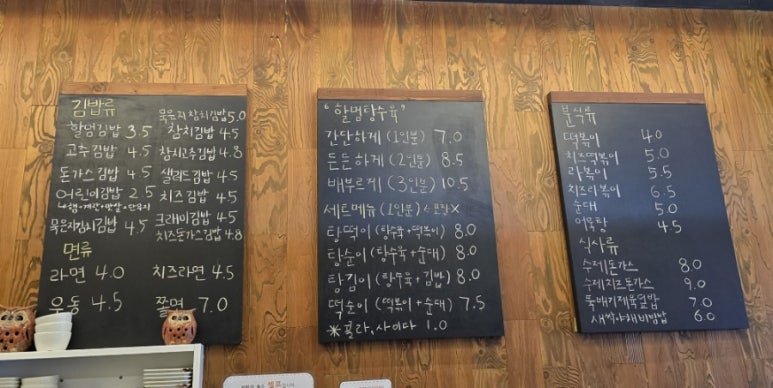 김밥류
할멈김밥 3.5
고추김밥 4.5
돈가스김밥 4.5
어린이김밥 2.5
묵은지김치김밥 4.5
묵은지참치김밥 5.0
참치김밥 4.5
참치고추김밥 4.8
샐러드김밥 4.5
치즈김밥 4.5
크래미김밥 4.5
치즈돈가스김밥 4.8
면류
라면 4.0
치즈라면 4.5
우동 4.5
쫄면 7.0
"할멈탕수육"
간단하게 (1인분) 7.0
든든하게 (2인분) 8.5
배부르게 (3인분) 10.5
세트메뉴 (1인분) 포장X
탕떡이 (탕수육+떡볶이) 8.0
탕순이 (탕수육+순대) 8.0
탕김이 (탕수육+김밥) 8.0
떡순이 (떡볶이+순대) 7.5
※콜라,사이다 1.0
분식류
떡볶이 4.0
치즈떡볶이 5.0
라볶이 5.5
치즈라볶이 6.5
순대 5.0
어묵탕 4.5
식사류
수제돈가스 8.0
수제치즈돈가스 9.0
뚝배기제육덮밥 7.0
새싹야채비빔밥 6.0